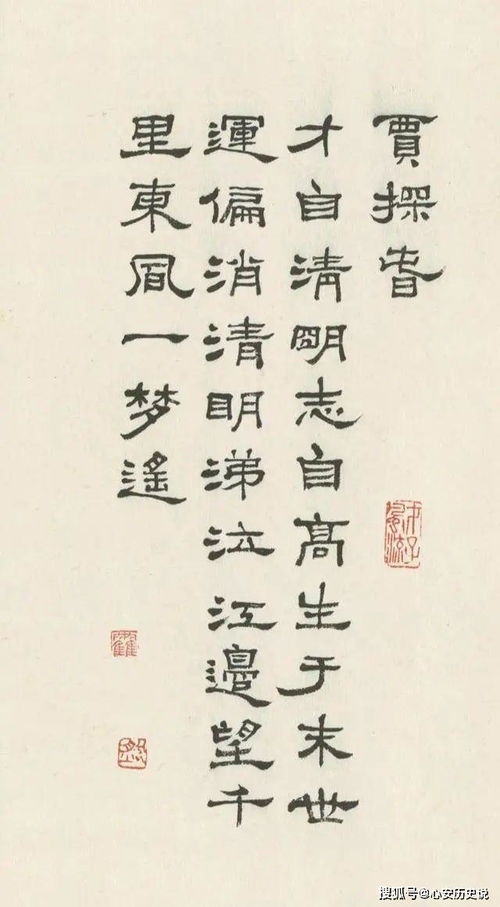 賈探春
才自清明志自高生于末世
運偏消清明涕泣江邊望千
里東風一夢遙
搜狐号@心安历史说